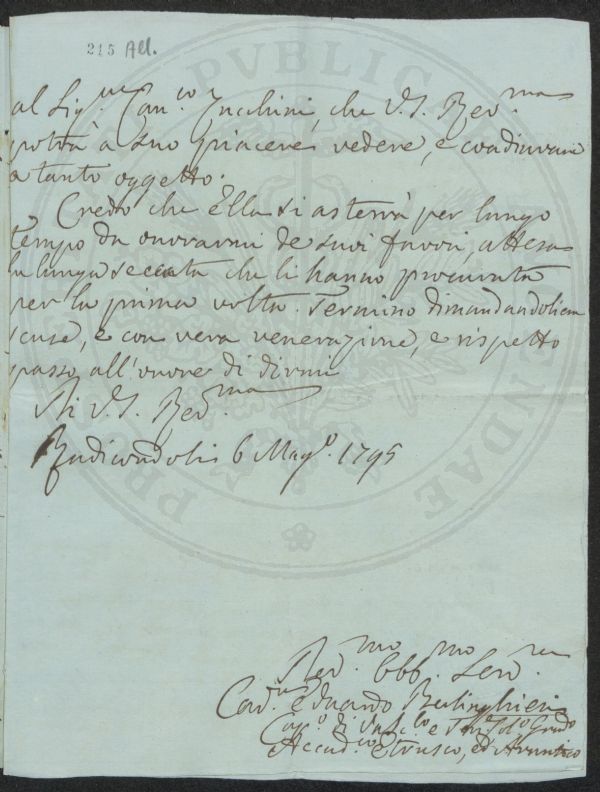 215 All.
al Sig.re Can.co Zucchini, che V.S. Rev.ma
potrà a suo piacere vedere, e coadiuvare
a tanto oggetto.
Credo che Ella si asterrà per lungo
tempo da onorarmi de suoi favori, attesa
la lunga seccata che li hanno procurata
per la prima volta. Termino dimandandoliene
scuse, e con vera venerazione, e rispetto
passo all'onore di dirmi
Di V.S. Rev.ma
Radicondoli 6 Mag.o 1795
Rev.mo Obb.mo Serv.re
Cav.re Eduardo Berlinghieri
Accad.co Etrusco, ed
PVBLIC